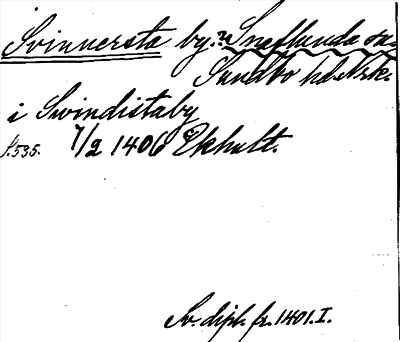 Svinnersta by. Snaflunda sn.
Sundbo hd. Nrk.
i Swindistaby
s. 535. 7/2 1406 Ekhult.
Sv. dipl. fr. 1401. I.